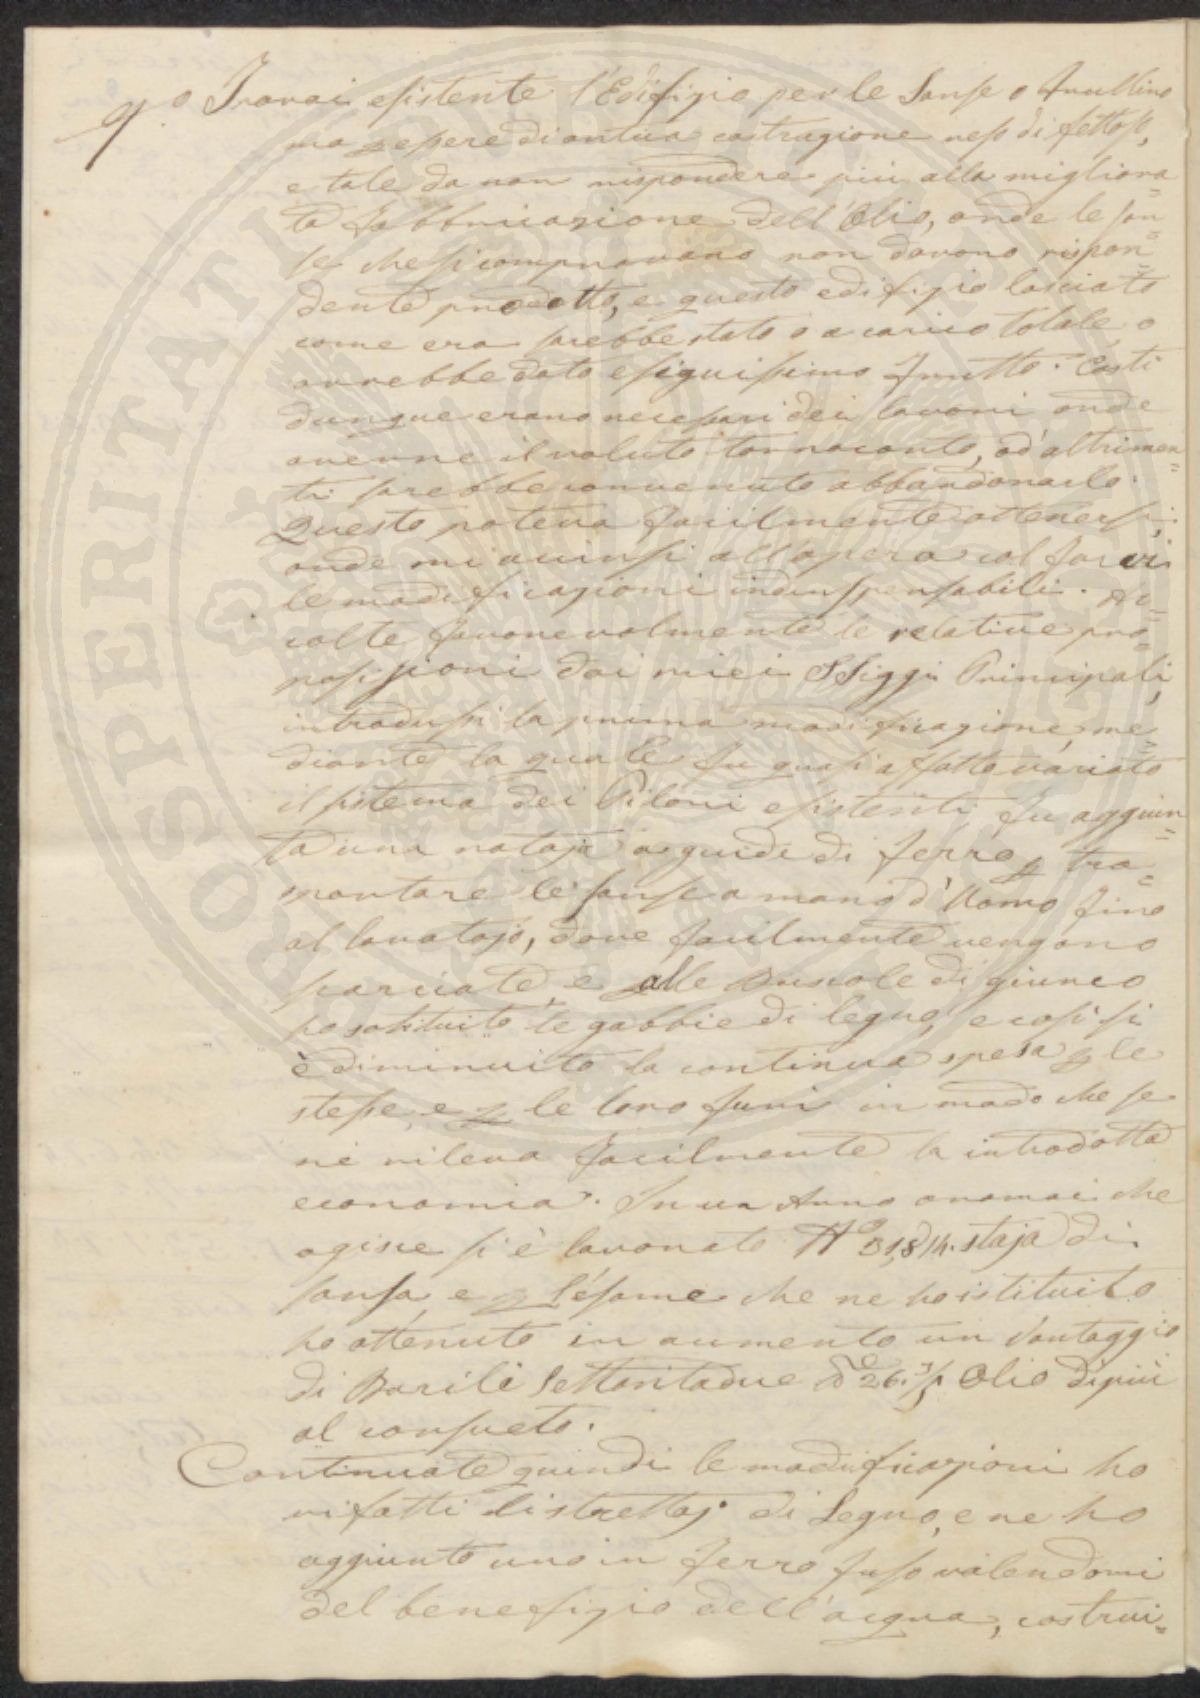 9.º Trovai esistente l'Edifizio per le Sanse o Frullino
ma p essere di antica costruzione reso difettoso,
e tale da non rispondere piu alla migliora=
ta Fabbricazione dell'Olio, onde le san=
se che si compravano non davano rispon=
dente prodotto, e questo edifizio lasciato
come era sarebbe stato o a carico totale o
avrebbe dato esiguissimo frutto. Costi
dunque erano necessari dei lavori onde
averne il voluto tornaconto, od altrimen=
ti sarebbe convenuto abbandonarlo.
Questo poteva facilmente ottenersi
onde mi accinsi all'opera col farvi
le modificazioni indispensabili. Ac=
colte favorevolmente le relative pro=
posizioni dai miei SSiggri Principali,
introdussi la prima modificazione, me
diante la quale fu quasi affatto variato
il sistema dei Piloni esistenti fu aggiun=
ta una rotaja a guide di ferro p tra=
sportare le sanse a mano d'Uomo fino
al lavatojo, dove facilmente vengono
scariate, e alle Buscole di giunco
ho sostituito le gabbie di legno, e così si
è diminuito la continua spesa p le
stesse, e p le loro funi in modo che se
ne rileva facilmente la introdotta
economia. In un Anno oramai che
agisce si è lavorato Nº 31,814. staja di
sansa, e p l'esame che ne ho istituito
ho ottenuto in aumento un Vantaggio
di Barili Settantadue 26. Olio di piu
al consueto.
Continuate quindi le modificazioni ho
rifatti li strettoj di Legno, e ne ho
aggiunto uno in ferro fuso valendomi
del benefizio dell'acqua, costrui=
ASPERITATI ROSPERITATI